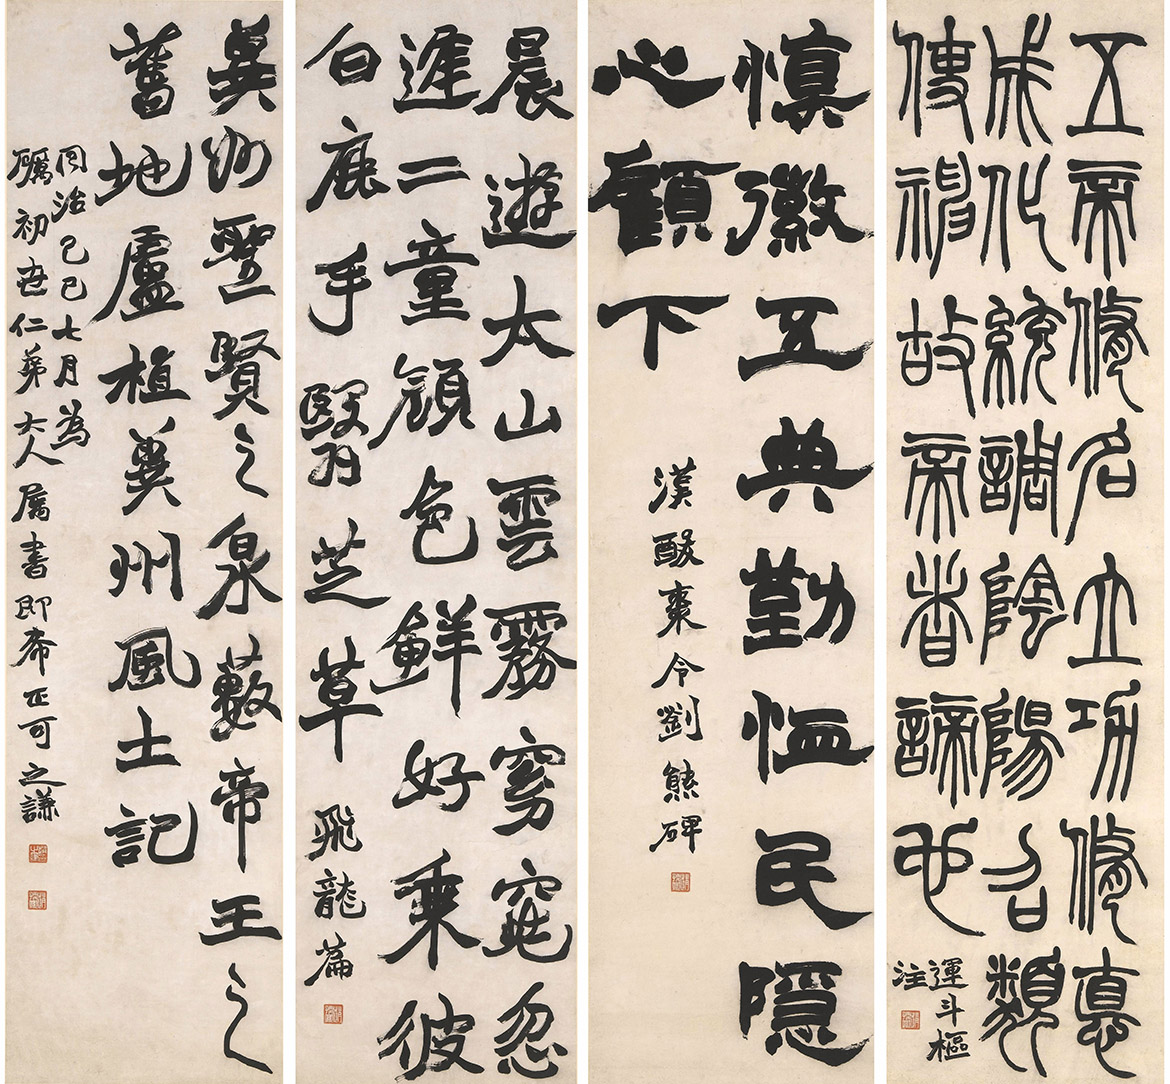 五帝脩名立功脩悳
成化統調陰陽召類
使神故帝者諦也
運斗樞
注
慎徽五典勤恤民隱
心顧下
漢酸棗令劉熊碑
晨遊太山雲霧窈窕忽
逢二童顏色鮮好乘彼
白鹿手翳芝草 飛龍篇
冀州聖賢之泉藪帝王之
舊地盧植冀州風土記
同治己巳七月為
礪初世仁弟大人屬書即希正可之謙